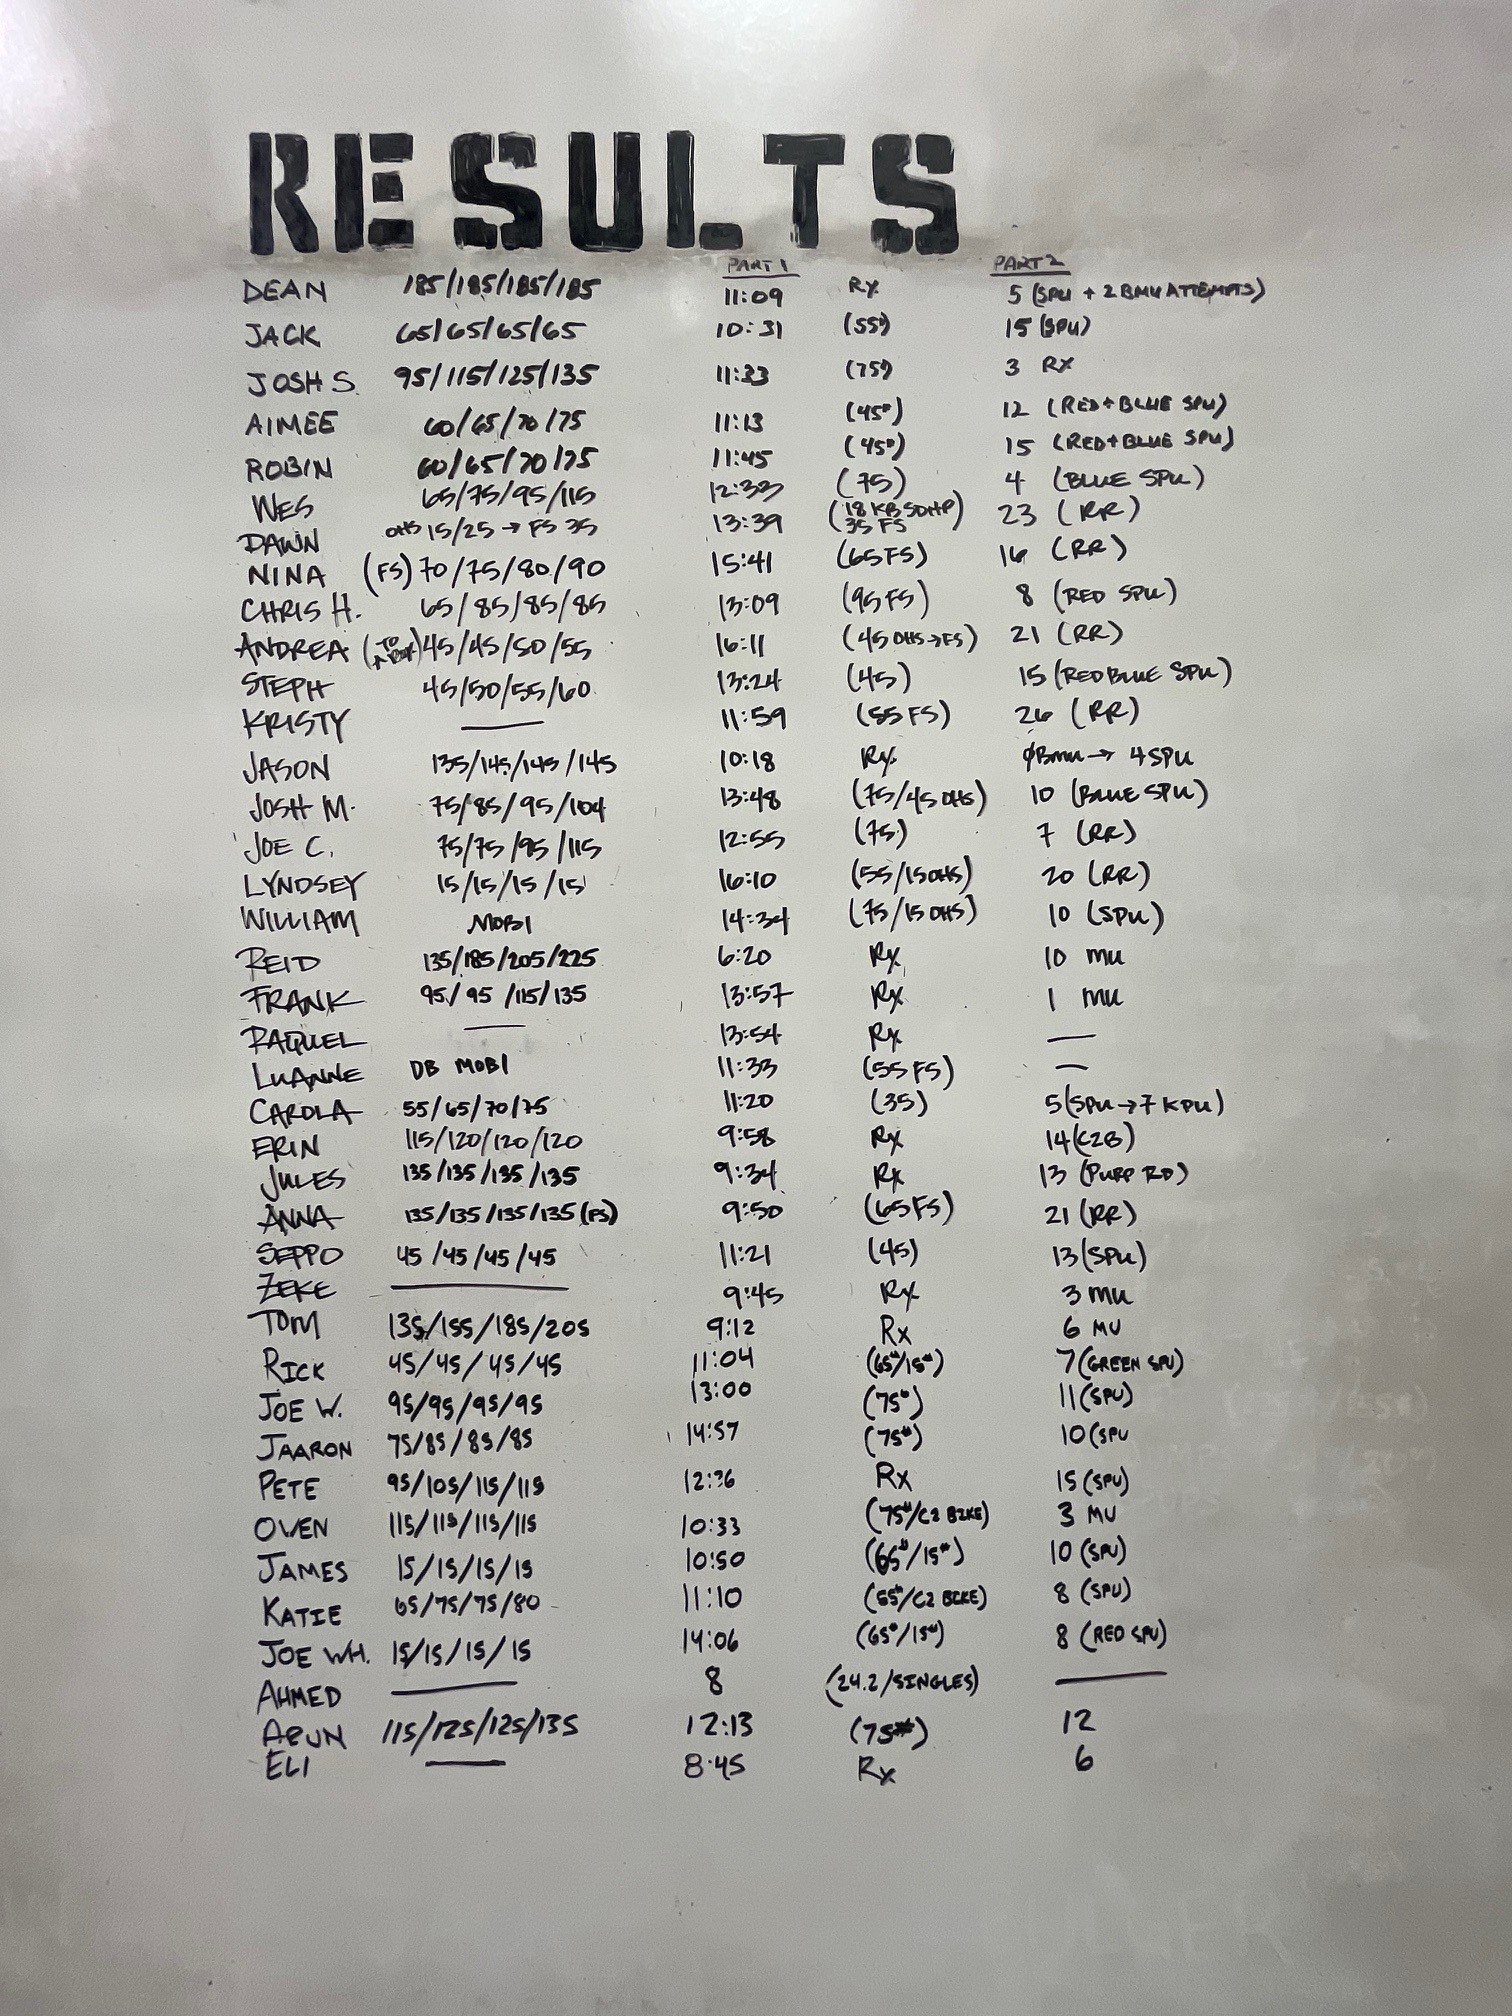 RESULTS
PART 1 PART 2
DEAN 185/185/185/185 11:09 Rx 5 (SPU + 2 BMU ATTEMPTS)
JACK 65/65/65/65 10:31 (55#) 15 (SPU)
JOSH S. 95/115/125/135 11:33 (75#) 3 RX
AIMEE 60/65/70/75 11:13 (45#) 12 (RED+BLUE SPU)
ROBIN 60/65/70/75 11:45 (45#) 15 (RED+BLUE SPU)
WES 65/75/95/115 12:33 (75) 4 (BLUE SPU)
DAWN OHS 15/25 → FS 35 13:39 (18 KB SDHP 35 FS) 23 (RR)
NINA (FS) 70/75/80/90 15:41 (65 FS) 16 (RR)
CHRIS H. 65/85/85/85 13:09 (95 FS) 8 (RED SPU)
ANDREA (TO A BOX) 45/45/50/55 16:11 (45 OHS→FS) 21 (RR)
STEPH 45/50/55/60 13:24 (45) 15 (RED BLUE SPU)
KRISTY — 11:59 (55 FS) 26 (RR)
JASON 135/145/145/145 10:18 Rx ØBMU → 4 SPU
JOSH M. 75/85/95/104 13:48 (75/45 OHS) 10 (BLUE SPU)
JOE C. 75/75/95/115 12:55 (75) 7 (RR)
LYNDSEY 15/15/15/15 16:10 (55/15 OHS) 20 (RR)
WILLIAM MOBI 14:34 (75/15 OHS) 10 (SPU)
REID 135/185/205/225 6:20 Rx 10 MU
FRANK 95/95/115/135 13:57 Rx 1 MU
RAQUEL — 13:54 Rx —
LUANNE DB MOBI 11:33 (55 FS) —
CAROLA 55/65/70/75 11:20 (35) 5 (SPU → 7 KPU)
ERIN 115/120/120/120 9:58 Rx 14 (C2B)
JULES 135/135/135/135 9:34 Rx 13 (PURP RD)
ANNA 135/135/135/135 (FS) 9:50 (65 FS) 21 (RR)
SEPPO 45/45/45/45 11:21 (45) 13 (SPU)
ZEKE — 9:45 Rx 3 MU
TOM 135/155/185/205 9:12 Rx 6 MU
RICK 45/45/45/45 11:04 (65#/15#) 7 (GREEN SPU)
JOE W. 95/95/95/95 13:00 (75#) 11 (SPU)
JAARON 75/85/85/85 14:57 (75#) 10 (SPU
PETE 95/105/115/115 12:36 Rx 15 (SPU)
OWEN 115/115/115/115 10:33 (75#/C2 BIKE) 3 MU
JAMES 15/15/15/15 10:50 (65#/15#) 10 (SPU)
KATIE 65/75/75/80 11:10 (55#/C2 BIKE) 8 (SPU)
JOE WH. 15/15/15/15 14:06 (65#/15#) 8 (RED SPU)
AHMED — 8 (24.2/SINGLES) —
ARUN 115/125/125/135 12:13 (75#) 12
ELI — 8:45 Rx 6